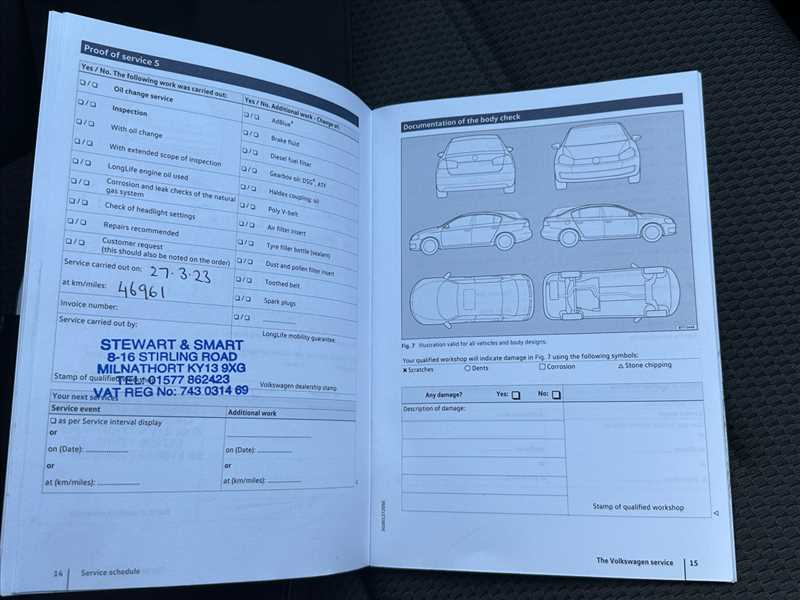 Proof of service 5
Yes / No. The following work was carried out:
❑ / ❑ Oil change service
❑ / ❑ Inspection
❑ / ❑ With oil change
❑ / ❑ With extended scope of inspection
❑ / ❑ LongLife engine oil used
❑ / ❑ Corrosion and leak checks of the natural
gas system
❑ / ❑ Check of headlight settings
❑ / ❑ Repairs recommended
❑ / ❑ Customer request
(this should also be noted on the order)
Service carried out on: 27.3.23
at km/miles: 46961
Invoice number:
Service carried out by:
STEWART & SMART
8-16 STIRLING ROAD
MILNATHORT KY13 9XG
TEL: 01577 862423
VAT REG No: 743 0314 69
Stamp of qualified
Yes / No. Additional work - Change of:
❑ / ❑ AdBlue®
❑ / ❑ Brake fluid
❑ / ❑ Diesel fuel filter
❑ / ❑ Gearbox oil: DSG®, ATF
❑ / ❑ Haldex coupling: oil
❑ / ❑ Poly V-belt
❑ / ❑ Air filter insert
❑ / ❑ Tyre filler bottle (sealant)
❑ / ❑ Dust and pollen filter insert
❑ / ❑ Toothed belt
❑ / ❑ Spark plugs
❑ / ❑
LongLife mobility guarantee
Volkswagen dealership stamp
Your next services
Service event Additional work
❑ as per Service interval display
or
on (Date): on (Date):
or or
at (km/miles): at (km/miles):
14 Service schedule
Documentation of the body check
Fig. 7 Illustration valid for all vehicles and body designs.
Your qualified workshop will indicate damage in Fig. 7 using the following symbols:
× Scratches ○ Dents □ Corrosion △ Stone chipping
Any damage? Yes: ❑ No: ❑
Description of damage:
Stamp of qualified workshop
The Volkswagen service 15